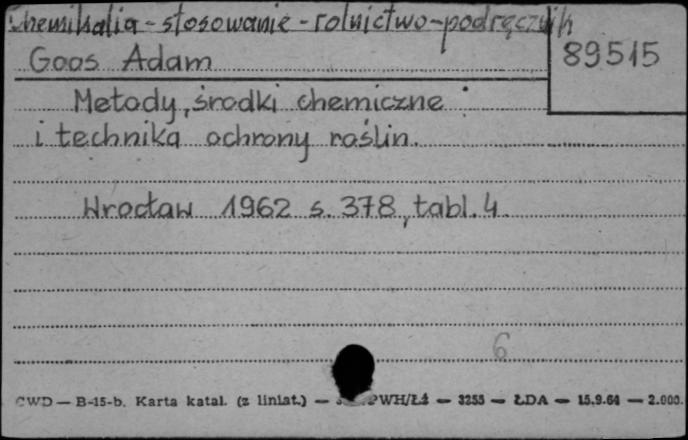 Chemikalia - stosowanie - rolnictwo - podręcznik
Goos Adam
89515
Metody, środki chemiczne
i technika ochrony roślin.
Wrocław 1962 s. 378, tabl. 4
6
CWD — B-15-b. Karta katal. (z liniat.) — PWH/Łź — 3255 — ŁDA — 15.9.64 — 2.000.